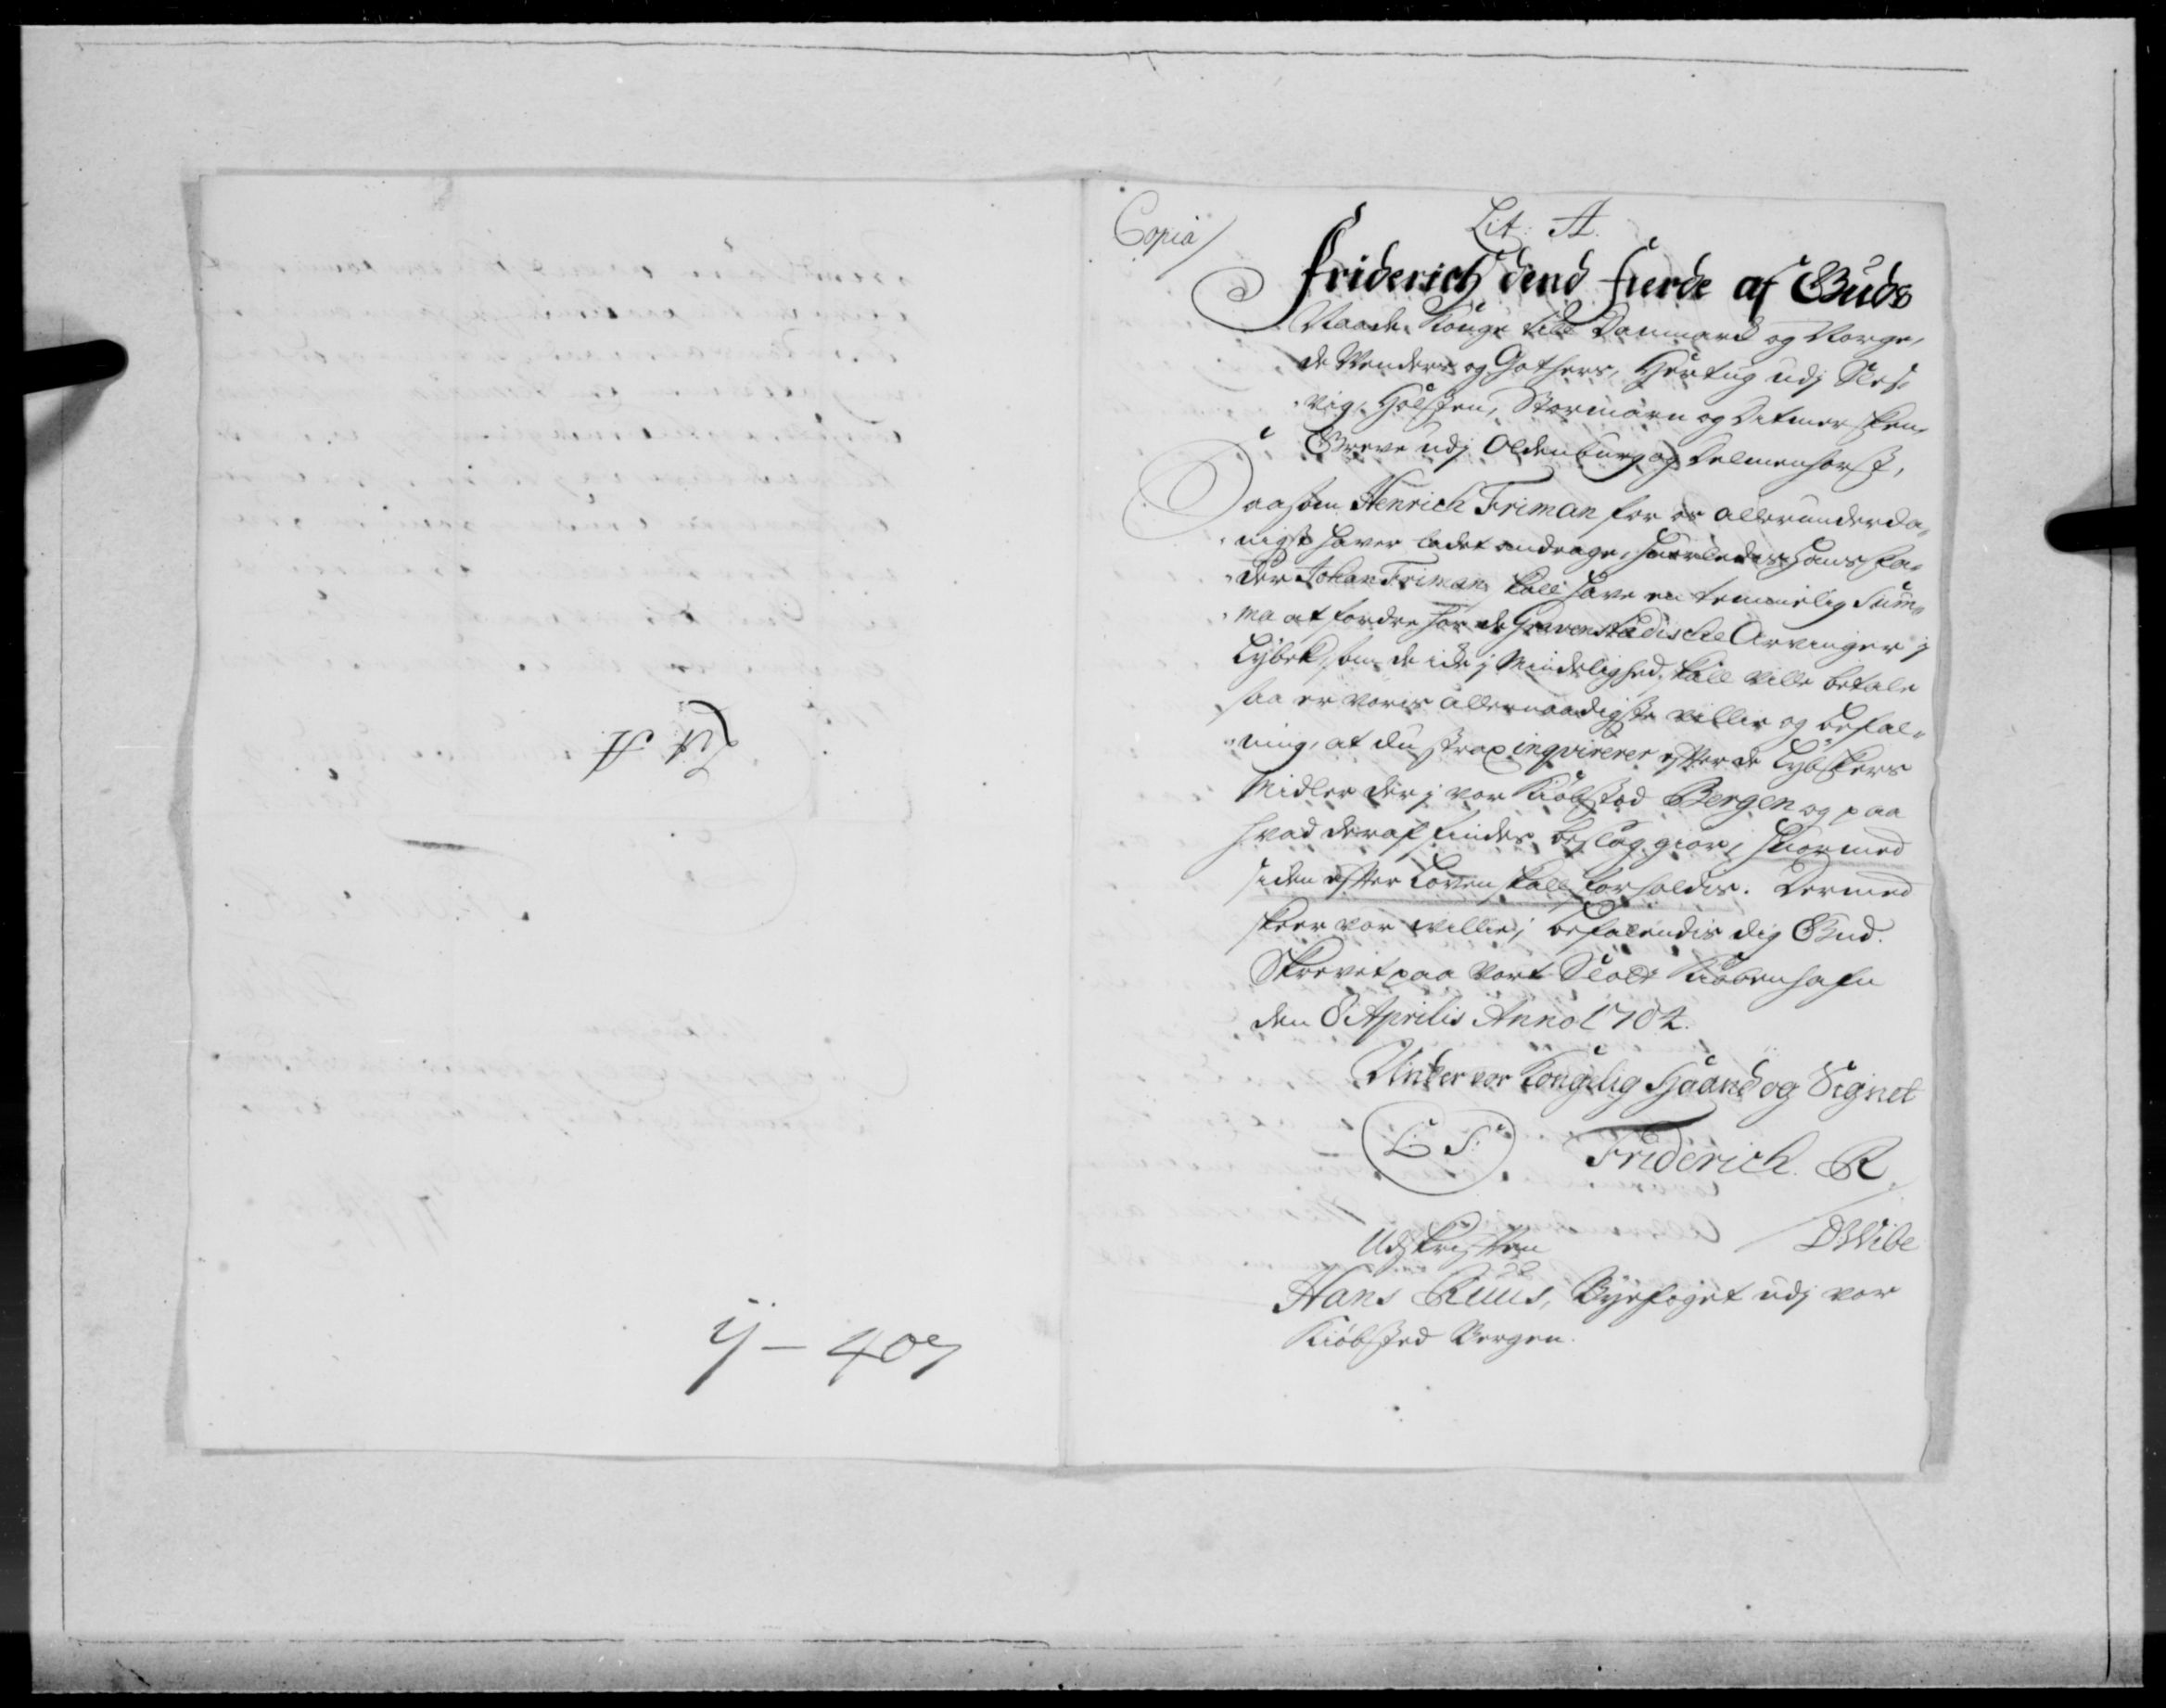 Lit A
y - 407
Copia/
Lit: A.
Friderich dend fierde af Guds
Naade Konge till Danmark og Norge,
de Wenders og Gothers, Hertug udj Sles-
vig, Holsten, Stormarn og Ditmersken,
Greve udj Oldenburg og Delmenhorst,
Saasom Henrich Friman for os allerunderda-
nigst haver ladet andrage, hvorledes hans Fa-
der Johan Friman skall have en temmelig Sum-
ma at fordre hos de Gravenstædische Arvinger j
Lybek, som de icke j Mindelighed skall ville betale
saa er voris allernaadigste villie og befal-
ning, at du strax inqvirerer efter de Lybskers
Midler der j vor Kiøbsted Bergen og paa
hvad deraf findes beslag giør, hvormed
siden efter Loven skall forholdes. Dermed
skeer vor willie, befalendis dig Gud.
Skrevet paa vort Slott Kiøbenhafn
den 8 Aprilis Anno 1704.
Under vor Kongelig Haand og Signet
L S. Friderich. R
DWibe
Udskriften
Hans Ruus, Byefoget udj vor
Kiøbsted Bergen.